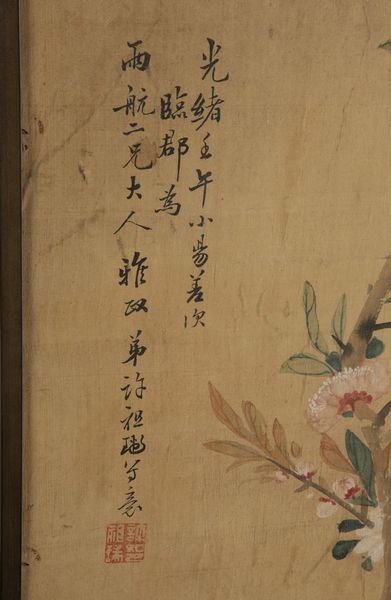 光緒壬午小昜差次
臨郡為
雨航二兄大人雅政弟許祖寫意